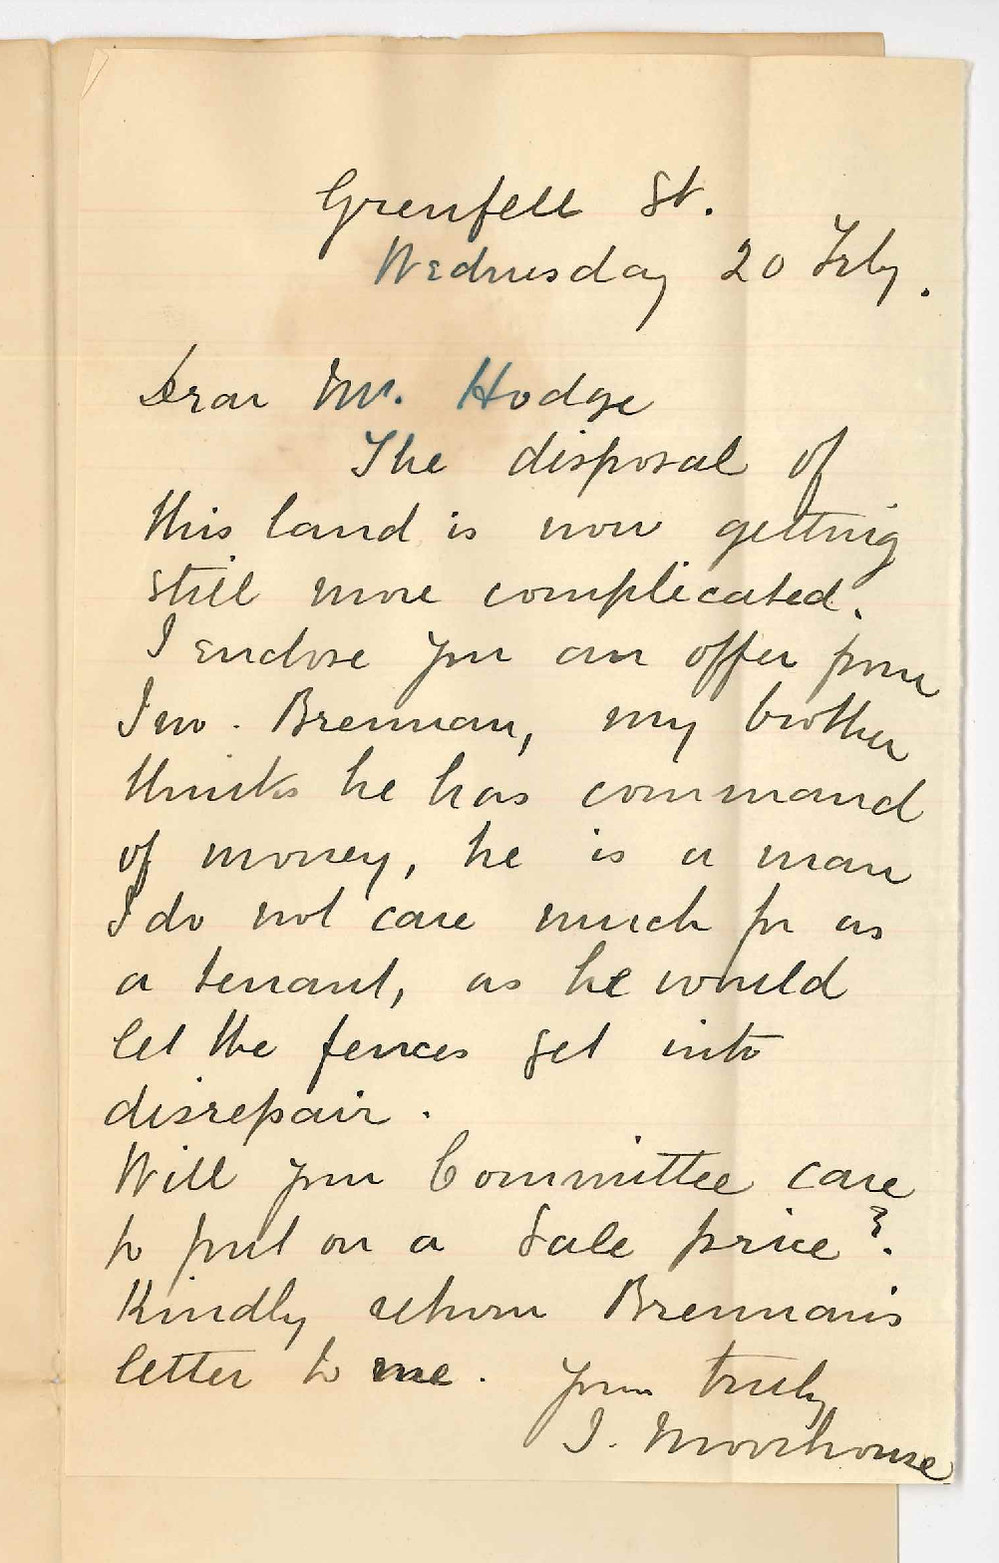 Grenfell St.
Wednesday 20 Feby.
Dear Mr. Hodge
The disposal of
this land is now getting
still more complicated.
I enclose you an offer from
Jno. Brennan, my brother
thinks he has command
of money, he is a man
I do not care much for as
a tenant, as he would
let the fences get into
disrepair.
Will your Committee care
to put on a Sale price?
Kindly return Brennan's
letter to me. Yours truly
J. Moorhouse